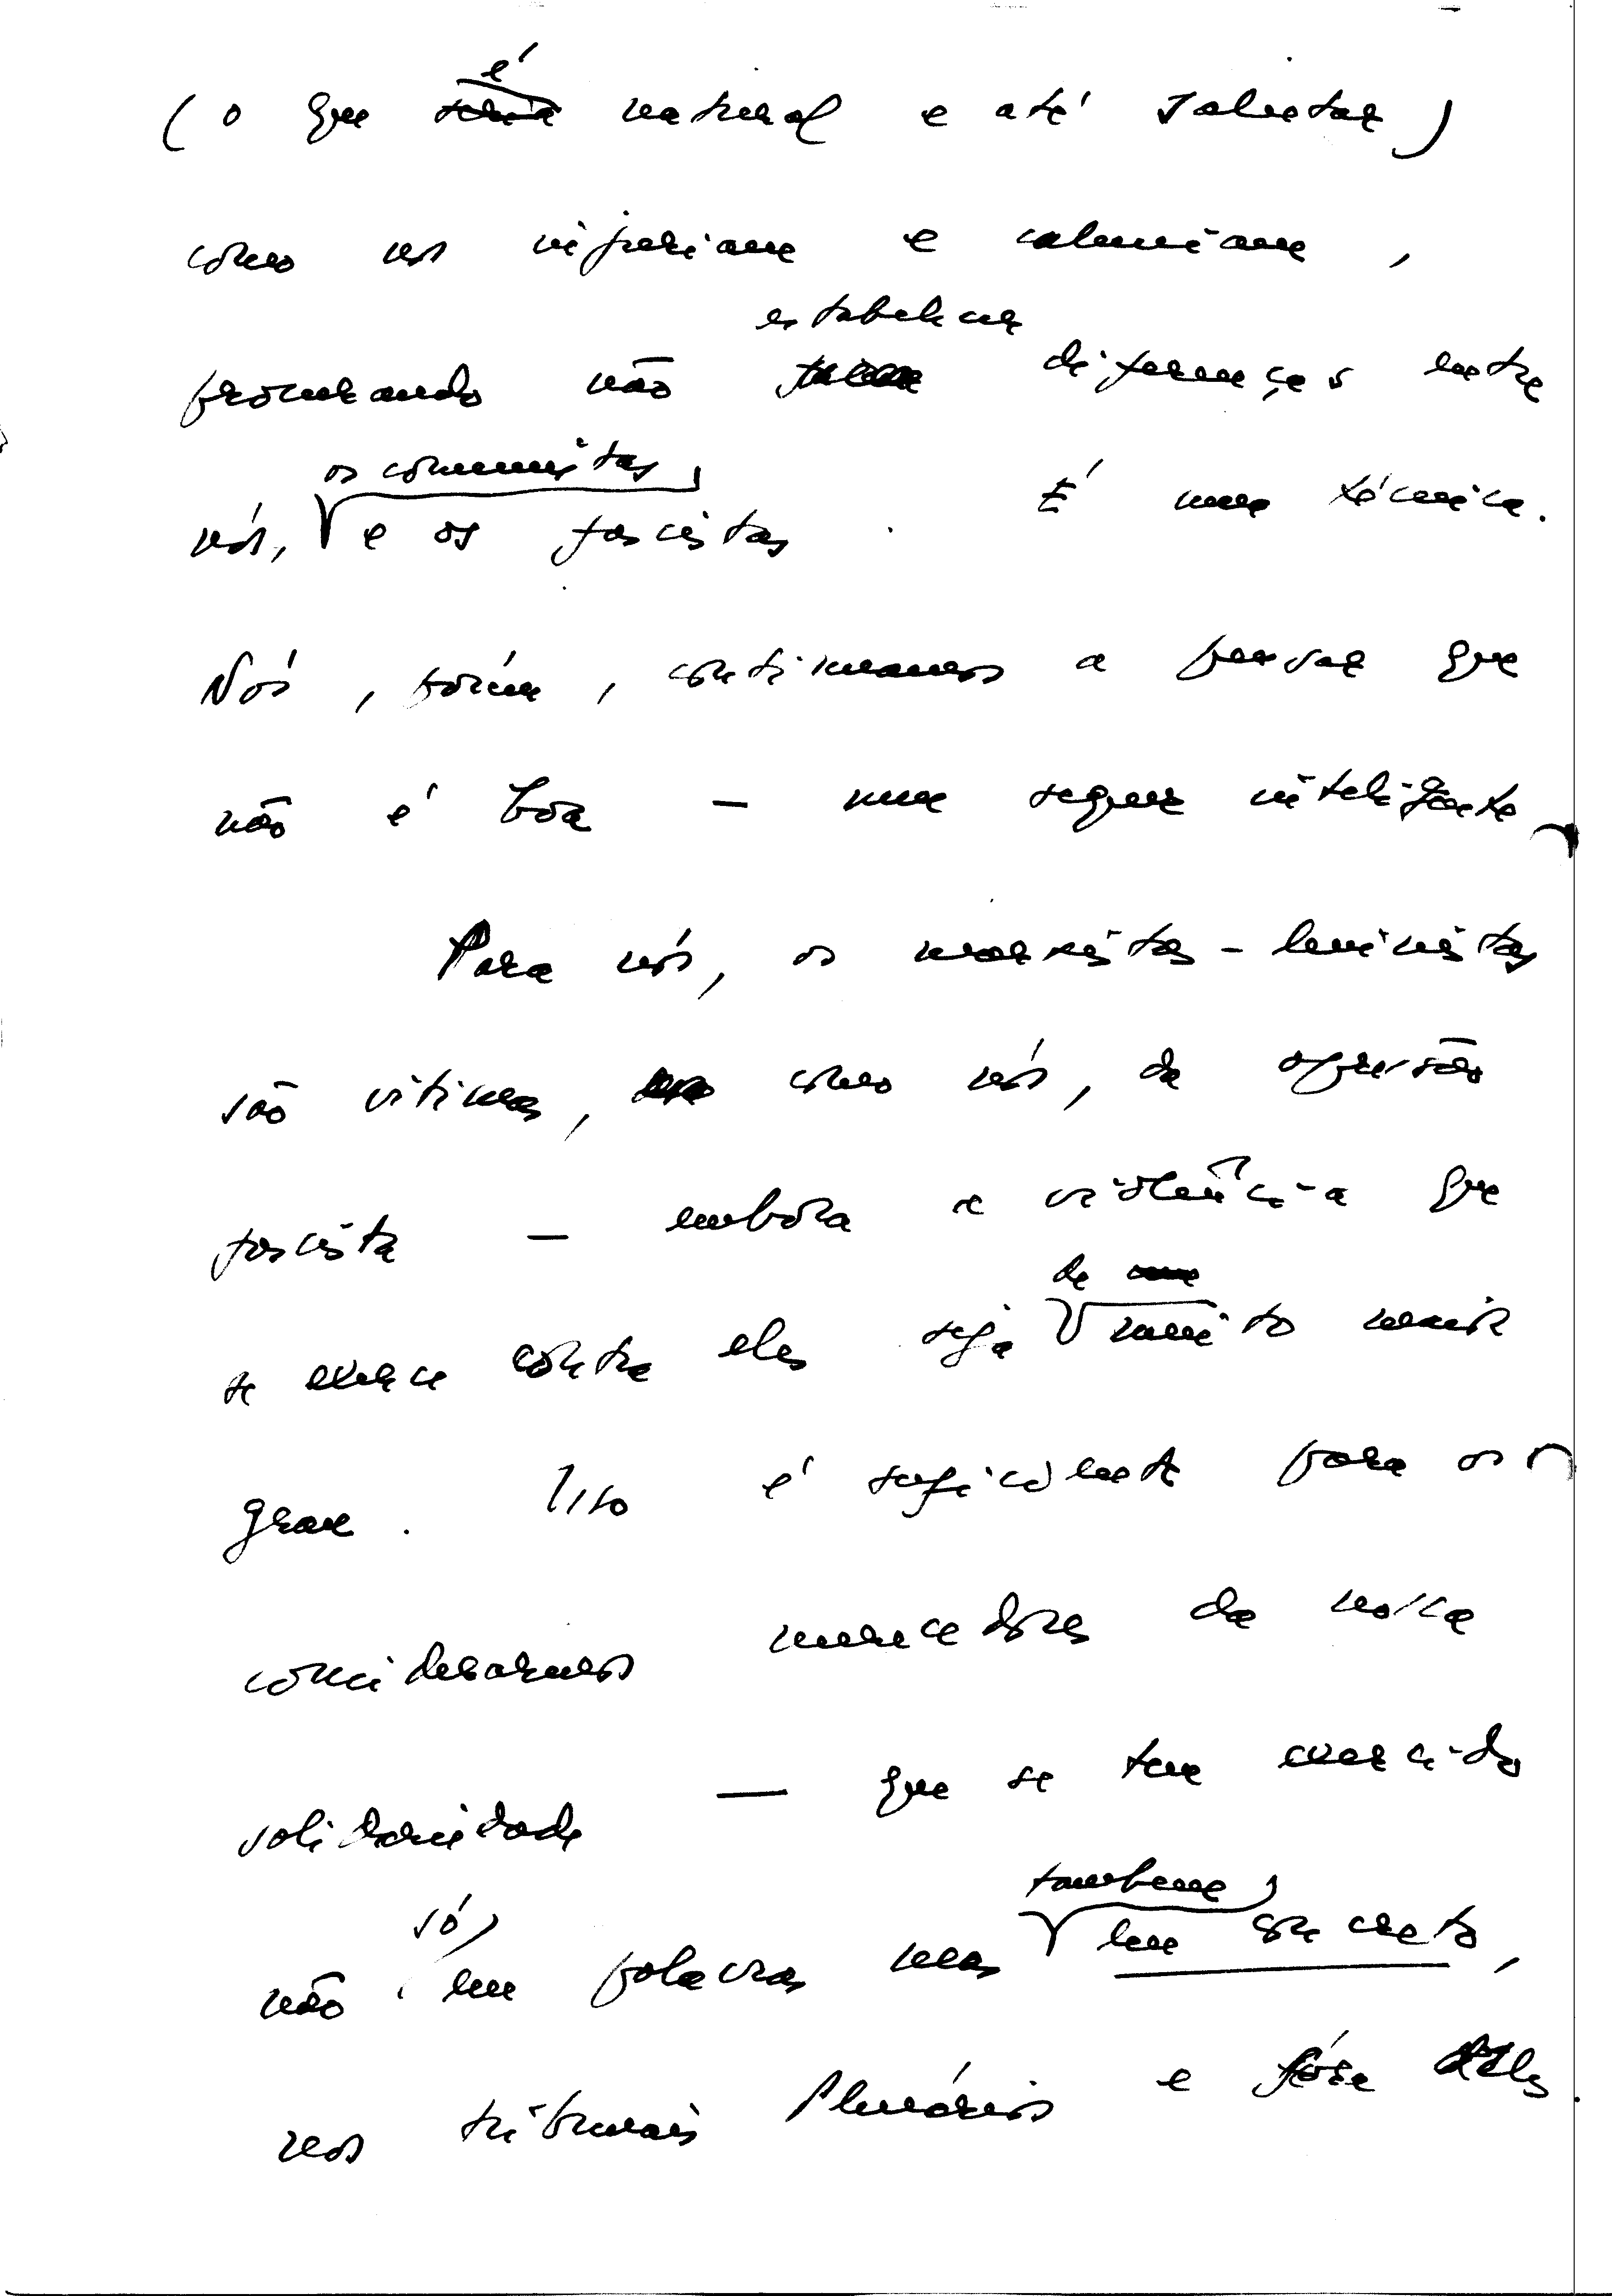 é
(o que seria natural e até salutar)
como nos injuriam e caluniam,
estabelecer
procurando não fazer diferenças entre
os comunistas,
nós, e os fascistas. É uma técnica.
Nós, porém, continuamos a pensar que
não é boa — nem sequer inteligente
Para nós, os marxistas-leninistas
são vítimas, como nós, da opressão
fascista — embora a violência que
de
se exerce contra eles seja muito mais
grave. Isso é suficiente para os
considerarmos merecedores da nossa
solidariedade — que se tem exercido
só, também,
não em palavras mas em concreto,
nos tribunais Plenários e fóra deles.